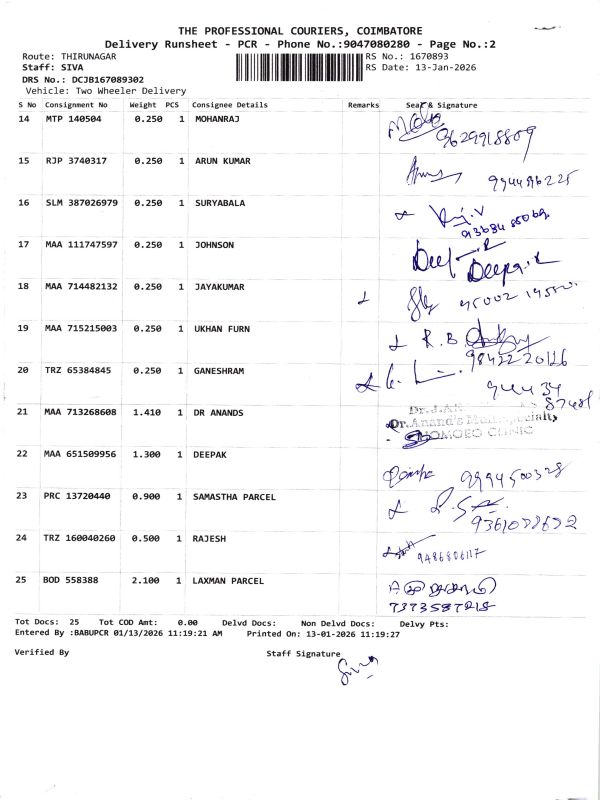 THE PROFESSIONAL COURIERS, COIMBATORE
Delivery Runsheet - PCR - Phone No.:9047080280 - Page No.:2
Route: THIRUNAGAR RS No.: 1670893
Staff: SIVA RS Date: 13-Jan-2026
DRS No.: DCJB167089302
Vehicle: Two Wheeler Delivery
S No Consignment No Weight PCS Consignee Details Remarks Seal & Signature
14 MTP 140504 0.250 1 MOHANRAJ
9629918809
15 RJP 3740317 0.250 1 ARUN KUMAR
994496225
16 SLM 387026979 0.250 1 SURYABALA
17 MAA 111747597 0.250 1 JOHNSON
Deepa.R
18 MAA 714482132 0.250 1 JAYAKUMAR
19 MAA 715215003 0.250 1 UKHAN FURN
R.B
9842220116
20 TRZ 65384845 0.250 1 GANESHRAM
21 MAA 713268608 1.410 1 DR ANANDS
Dr.Anand's
HOMOEO CLINIC
22 MAA 651509956 1.300 1 DEEPAK
9994500328
23 PRC 13720440 0.900 1 SAMASTHA PARCEL
24 TRZ 160040260 0.500 1 RAJESH
9486806117
25 BOD 558388 2.100 1 LAXMAN PARCEL
7373587215
Tot Docs: 25 Tot COD Amt: 0.00 Delvd Docs: Non Delvd Docs: Delvy Pts:
Entered By :BABUPCR 01/13/2026 11:19:21 AM Printed On: 13-01-2026 11:19:27
Verified By Staff Signature
Siva